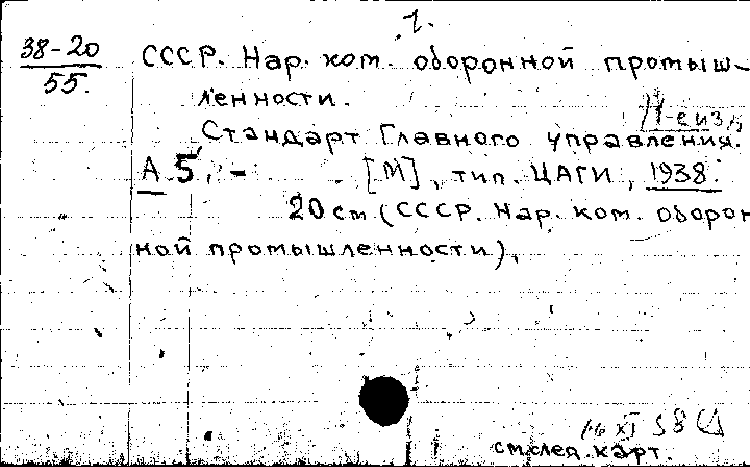 .1.
38-20
55.
СССР. Нар. ком. оборонной промыш-
ленности.
1-е изд
Стандарт Главного управления.
А 5, - [М], тип. ЦАГИ, 1938.
20 см (СССР. Нар. ком. оборон
ной промышленности),
16 XI 58
см.след.карт.